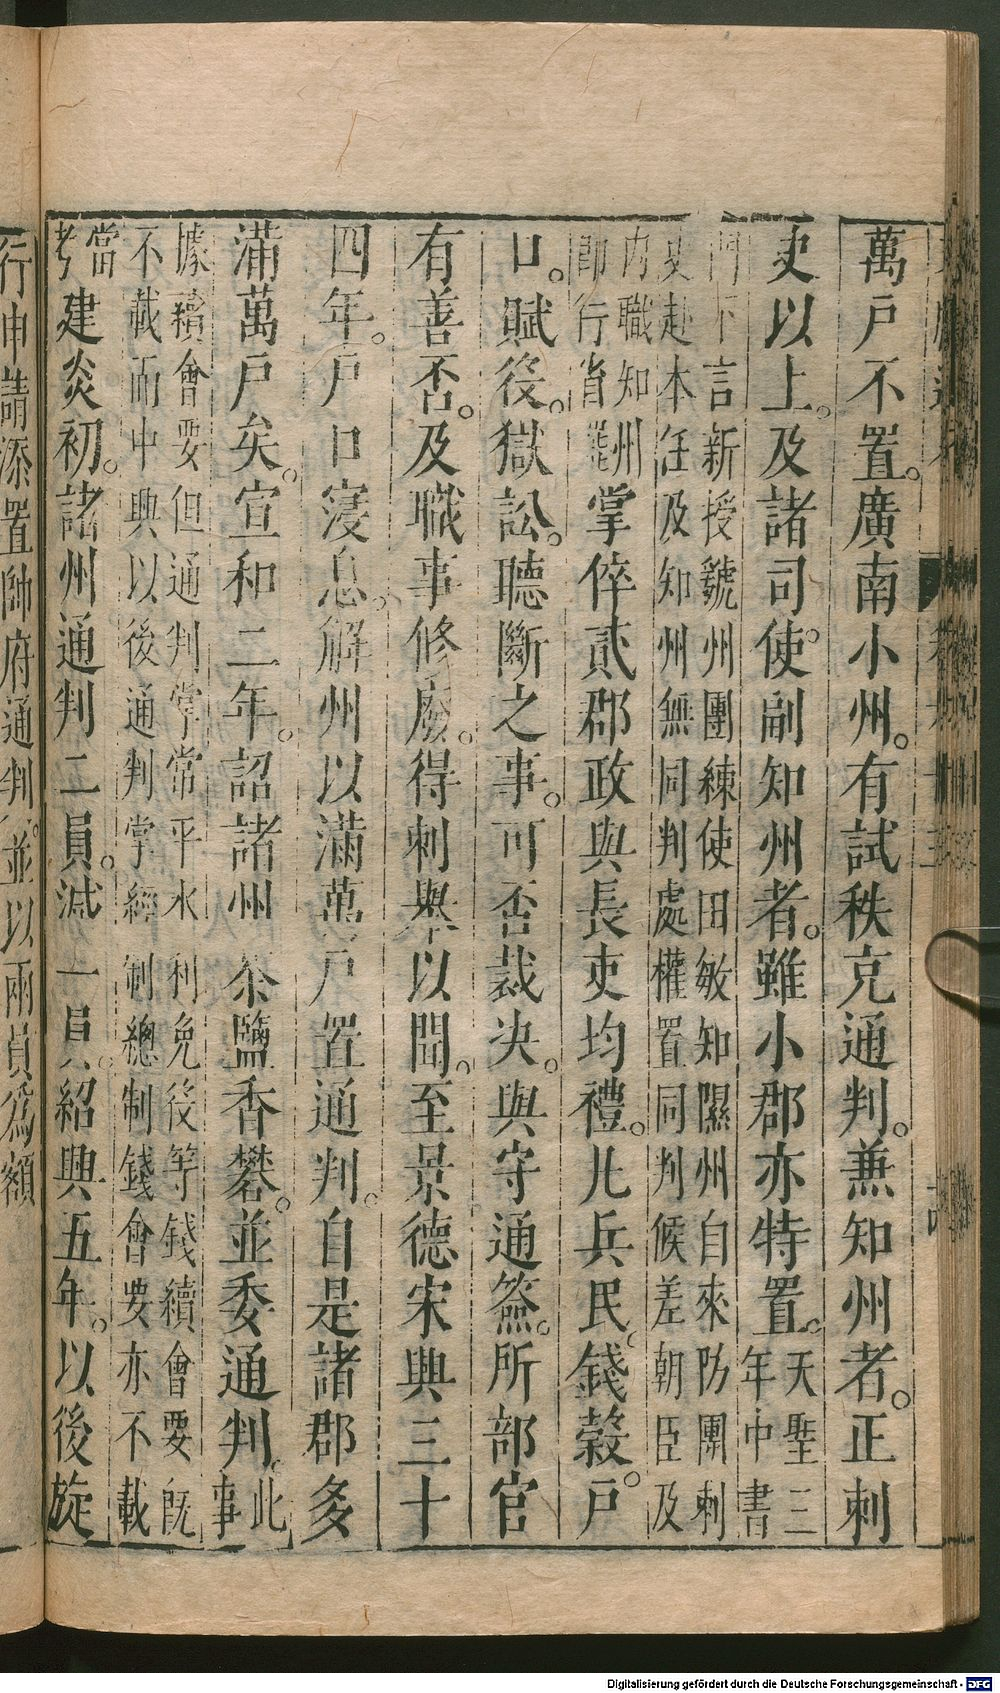 萬戶不置。廣南小州。有試秩充通判。兼知州者。正刺
史以上。及諸司使。副知州者。雖小郡亦特置。天聖三
年中書
門下言新授虢州團練使田敏知隰州自來防團刺
史赴本任及知州無同判處權置同判候差朝臣及
內職知州
即行省罷
掌倅貳郡政與長吏均禮。凡兵民。錢穀。戶
口。賦役。獄訟。聽斷之事。可否裁决。與守通簽。所部官
有善否。及職事修廢。得刺舉以聞。至景德宋興三十
四年。戶口寖息。解州以滿萬戶置通判。自是諸郡多
滿萬戶矣。宣和二年。詔諸州茶鹽香礬。並委通判。此
事
據續會要但通判掌常平水利免役等錢續會要既
不載而中興以後通判掌經制總制錢會要亦不載
當
考
建炎初。諸州通判二員。減一員。紹興五年。以後旋
行申請添置帥府通判。並以兩員為額
Digitalisierung gefördert durch die Deutsche Forschungsgemeinschaft - DFG